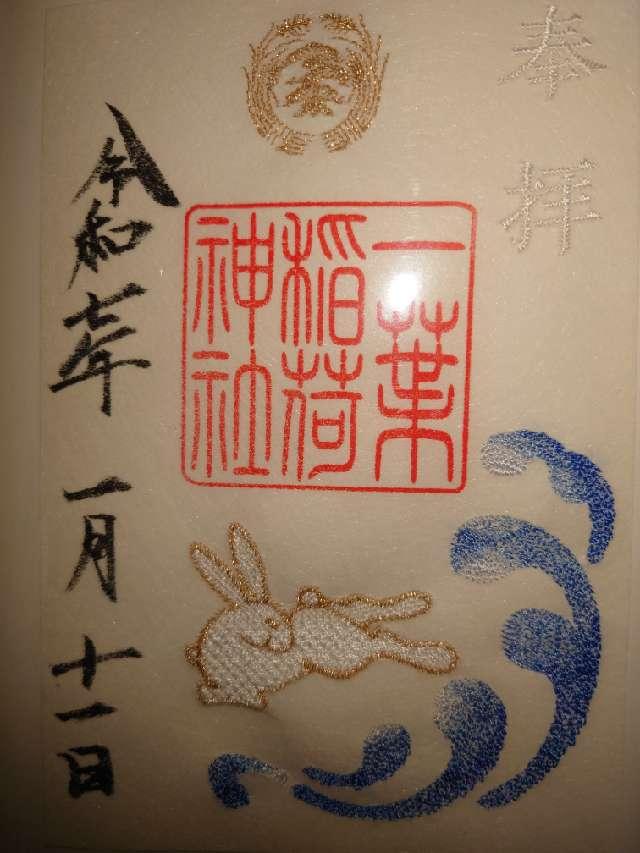 奉拝
一葉
稲荷
神社
令和七年 一月十一日